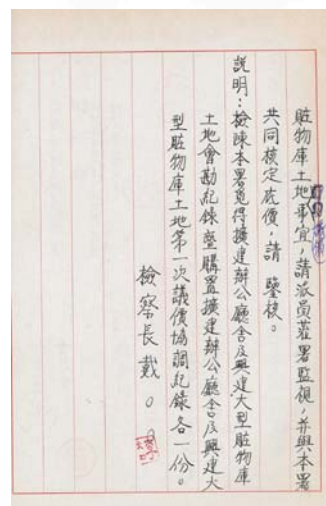 贓物庫土地事宜，請派員蒞署監視，並與本署
共同核定底價，請 鑒核。
說明：檢陳本署覓得擴建辦公廳舍及興建大型贓物庫
土地會勘紀錄暨購置擴建辦公廳舍及興建大
型贓物庫土地第一次議價協調紀錄各一份。
檢察長戴〇〇